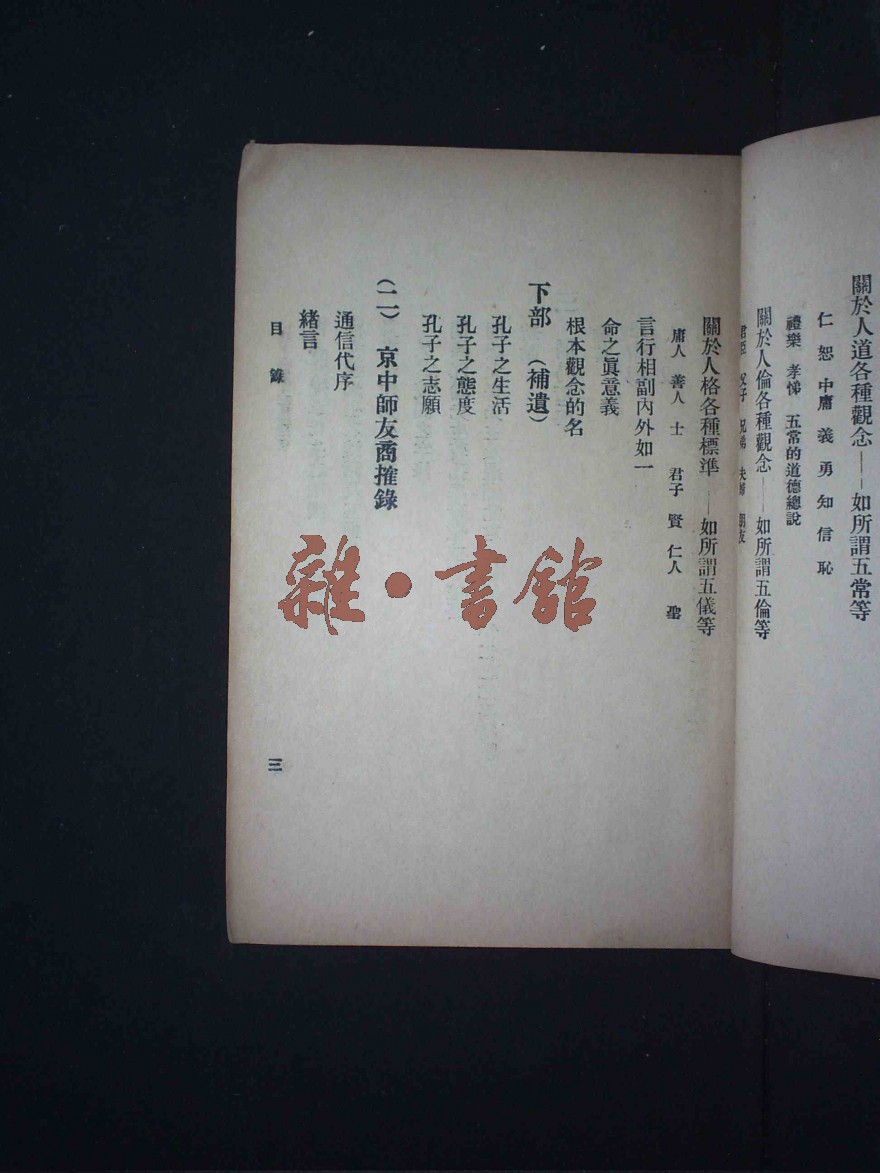 關於人道各種觀念——如所謂五常等
仁 恕 中庸 義 勇 知 信 恥
禮樂 孝悌 五常的道德總說
關於人倫各種觀念——如所謂五倫等
君臣 父子 兄弟 夫婦 朋友
關於人格各種標準——如所謂五儀等
庸人 善人 士 君子 賢 仁人 聖
言行相副內外如一
命之眞意義
根本觀念的名
下部 (補遺)
孔子之生活
孔子之態度
孔子之志願
(二) 京中師友商搉錄
通信代序
緒言
目錄
三
雜·書館